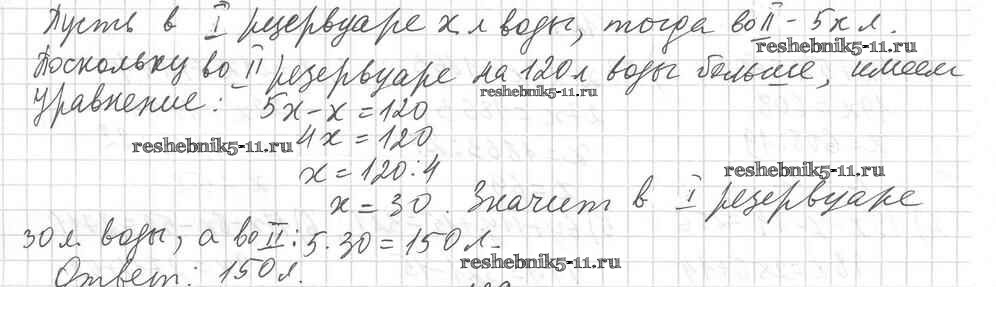 Пусть в I резервуаре x л воды, тогда во II - 5x л.
reshebnik5-11.ru
Поскольку во II резервуаре на 120 л воды больше, имеем
reshebnik5-11.ru
уравнение: 5x - x = 120
4x = 120
reshebnik5-11.ru
x = 120 : 4
reshebnik5-11.ru
x = 30. Значит в I резервуаре
30 л. воды, а во II: 5 · 30 = 150 л.
reshebnik5-11.ru
Ответ: 150 л.